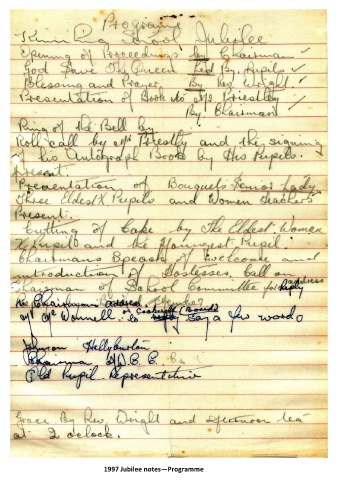 Programe
School Jubilee
Opening of Proceedings by Chairman ✓
God Save The Queen Led By Pupils ✓
Blessing and Prayer By Rev. Wright ✓
Presentation of Book to Mr Priestley ✓
By Chairman
Ring of the Bell by
Roll call by Mr Priestly and the signing
of his Autograph Book by His Pupils.
Present.
Presentation of Bouquets Senior Lady.
Three Eldest Pupils and Women Teachers
Present.
Cutting of Cake by The Eldest Woman
Pupil and the Youngest Pupil.
Chairmans Speach of Welcome and
introduction of Hostesses. Call on
Chairman of School Committee for address
Reply
Chairman
to say a few words
Johnson Hellyburton
Chairman
Old Pupil Representative
Grace By Rev. Wright and afternoon tea
at 2 oclock.
1997 Jubilee notes—Programme